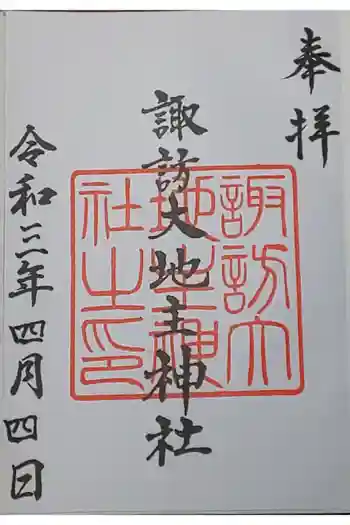 奉拝
諏訪大地主神社
諏訪大
地主神
社之印
令和三年四月四日